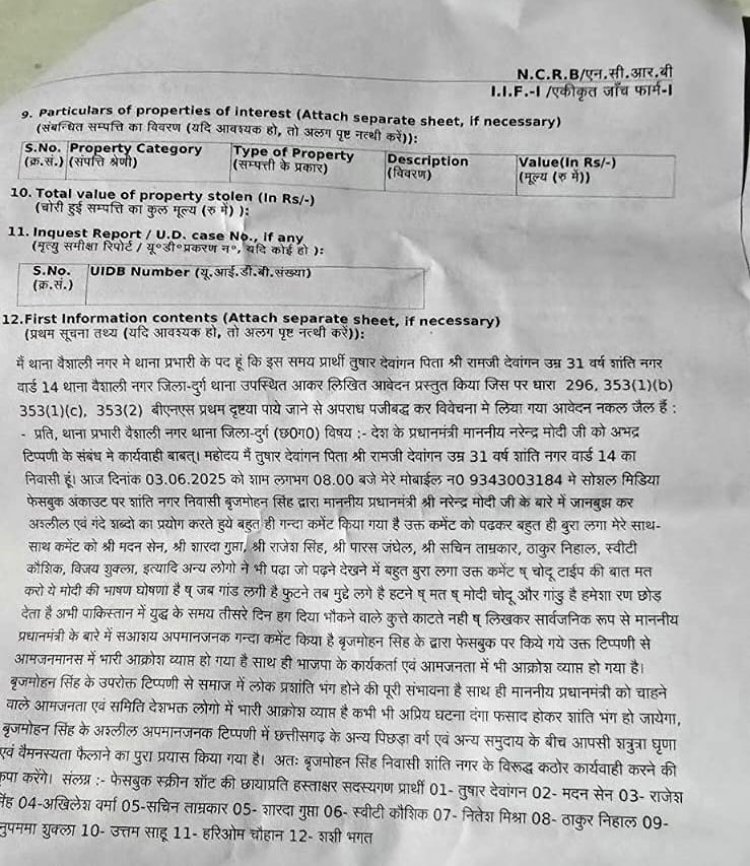 N.C.R.B/एन.सी.आर.बी
I.I.F.-I /एकीकृत जाँच फार्म-I
9. Particulars of properties of interest (Attach separate sheet, if necessary)
(संबन्धित सम्पत्ति का विवरण (यदि आवश्यक हो, तो अलग पृष्ट नत्थी करें)):
S.No. (क्र.सं.) Property Category (संपत्ति श्रेणी) Type of Property (सम्पत्ती के प्रकार) Description (विवरण) Value(In Rs/-) (मूल्य (रु में))
10. Total value of property stolen (In Rs/-)
(चोरी हुई सम्पत्ति का कुल मूल्य (रु में) ):
11. Inquest Report / U.D. case No., if any
(मृत्यु समीक्षा रिपोर्ट / यू॰डी॰प्रकरण न॰, यदि कोई हो ):
S.No. (क्र.सं.) UIDB Number (यू.आई.डी.बी.संख्या)
12.First Information contents (Attach separate sheet, if necessary)
(प्रथम सूचना तथ्य (यदि आवश्यक हो, तो अलग पृष्ट नत्थी करें)):
मैं थाना वैशाली नगर मे थाना प्रभारी के पद हूं कि इस समय प्रार्थी तुषार देवांगन पिता श्री रामजी देवांगन उम्र 31 वर्ष शांति नगर
वार्ड 14 थाना वैशाली नगर जिला-दुर्ग थाना उपस्थित आकर लिखित आवेदन प्रस्तुत किया जिस पर धारा 296, 353(1)(b)
353(1)(c), 353(2) बीएनएस प्रथम दृष्टया पाये जाने से अपराध पजीबद्ध कर विवेचना मे लिया गया आवेदन नकल जैल हैं :
- प्रति, थाना प्रभारी वैशाली नगर थाना जिला-दुर्ग (छ0ग0) विषय :- देश के प्रधानमंत्री माननीय नरेन्द्र मोदी जी को अभद्र
टिप्पणी के संबंध मे कार्यवाही बाबत्। महोदय मैं तुषार देवांगन पिता श्री रामजी देवांगन उम्र 31 वर्ष शांति नगर वार्ड 14 का
निवासी हूं। आज दिनांक 03.06.2025 को शाम लगभग 08.00 बजे मेरे मोबाईल न0 9343003184 मे सोशल मिडिया
फेसबुक अंकाउट पर शांति नगर निवासी बृजमोहन सिंह द्वारा माननीय प्रधानमंत्री श्री नरेन्द्र मोदी जी के बारे में जानबुझ कर
अश्लील एवं गंदे शब्दो का प्रयोग करते हुये बहुत ही गन्दा कमेंट किया गया है उक्त कमेंट को पढकर बहुत ही बुरा लगा मेरे साथ-
साथ कमेंट को श्री मदन सेन, श्री शारदा गुप्ता, श्री राजेश सिंह, श्री पारस जंघेल, श्री सचिन ताम्रकार, ठाकुर निहाल, स्वीटी
कौशिक, विजय शुक्ला, इत्यादि अन्य लोगो ने भी पढा जो पढ़ने देखने में बहुत बुरा लगा उक्त कमेंट ष् चोदू टाईप की बात मत
करो ये मोदी की भाषण घोषणा है ष् जब गांड लगी है फुटने तब मुद्दे लगे है हटने ष् मत ष् मोदी चोदू और गांडु है हमेशा रण छोड
देता है अभी पाकिस्तान में युद्ध के समय तीसरे दिन हग दिया भौकने वाले कुत्ते काटते नही ष् लिखकर सार्वजनिक रूप से माननीय
प्रधानमंत्री के बारे में सआशय अपमानजनक गन्दा कमेंट किया है बृजमोहन सिंह के द्वारा फेसबुक पर किये गये उक्त टिप्पणी से
आमजनमानस में भारी आक्रोश व्याप्त हो गया है साथ ही भाजपा के कार्यकर्ता एवं आमजनता में भी आक्रोश व्याप्त हो गया है।
बृजमोहन सिंह के उपरोक्त टिप्पणी से समाज में लोक प्रशांति भंग होने की पूरी संभावना है साथ ही माननीय प्रधानमंत्री को चाहने
वाले आमजनता एवं समिति देशभक्त लोगो में भारी आक्रोश व्याप्त है कभी भी अप्रिय घटना दंगा फसाद होकर शांति भंग हो जायेगा,
बृजमोहन सिंह के अश्लील अपमानजनक टिप्पणी में छत्तीसगढ़ के अन्य पिछड़ा वर्ग एवं अन्य समुदाय के बीच आपसी शत्रुत्रा घृणा
एवं वैमनस्यता फैलाने का पुरा प्रयास किया गया है। अतः बृजमोहन सिंह निवासी शांति नगर के विरूद्ध कठोर कार्यवाही करने की
कृपा करेंगे। संलग्न :- फेसबुक स्क्रीन शॉट की छायाप्रति हस्ताक्षर सदस्यगण प्रार्थी 01- तुषार देवांगन 02- मदन सेन 03- राजेश
सिंह 04-अखिलेश वर्मा 05-सचिन ताम्रकार 05- शारदा गुप्ता 06- स्वीटी कौशिक 07- नितेश मिश्रा 08- ठाकुर निहाल 09-
शुक्ला 10- उत्तम साहू 11- हरिओम चौहान 12- शशी भगत